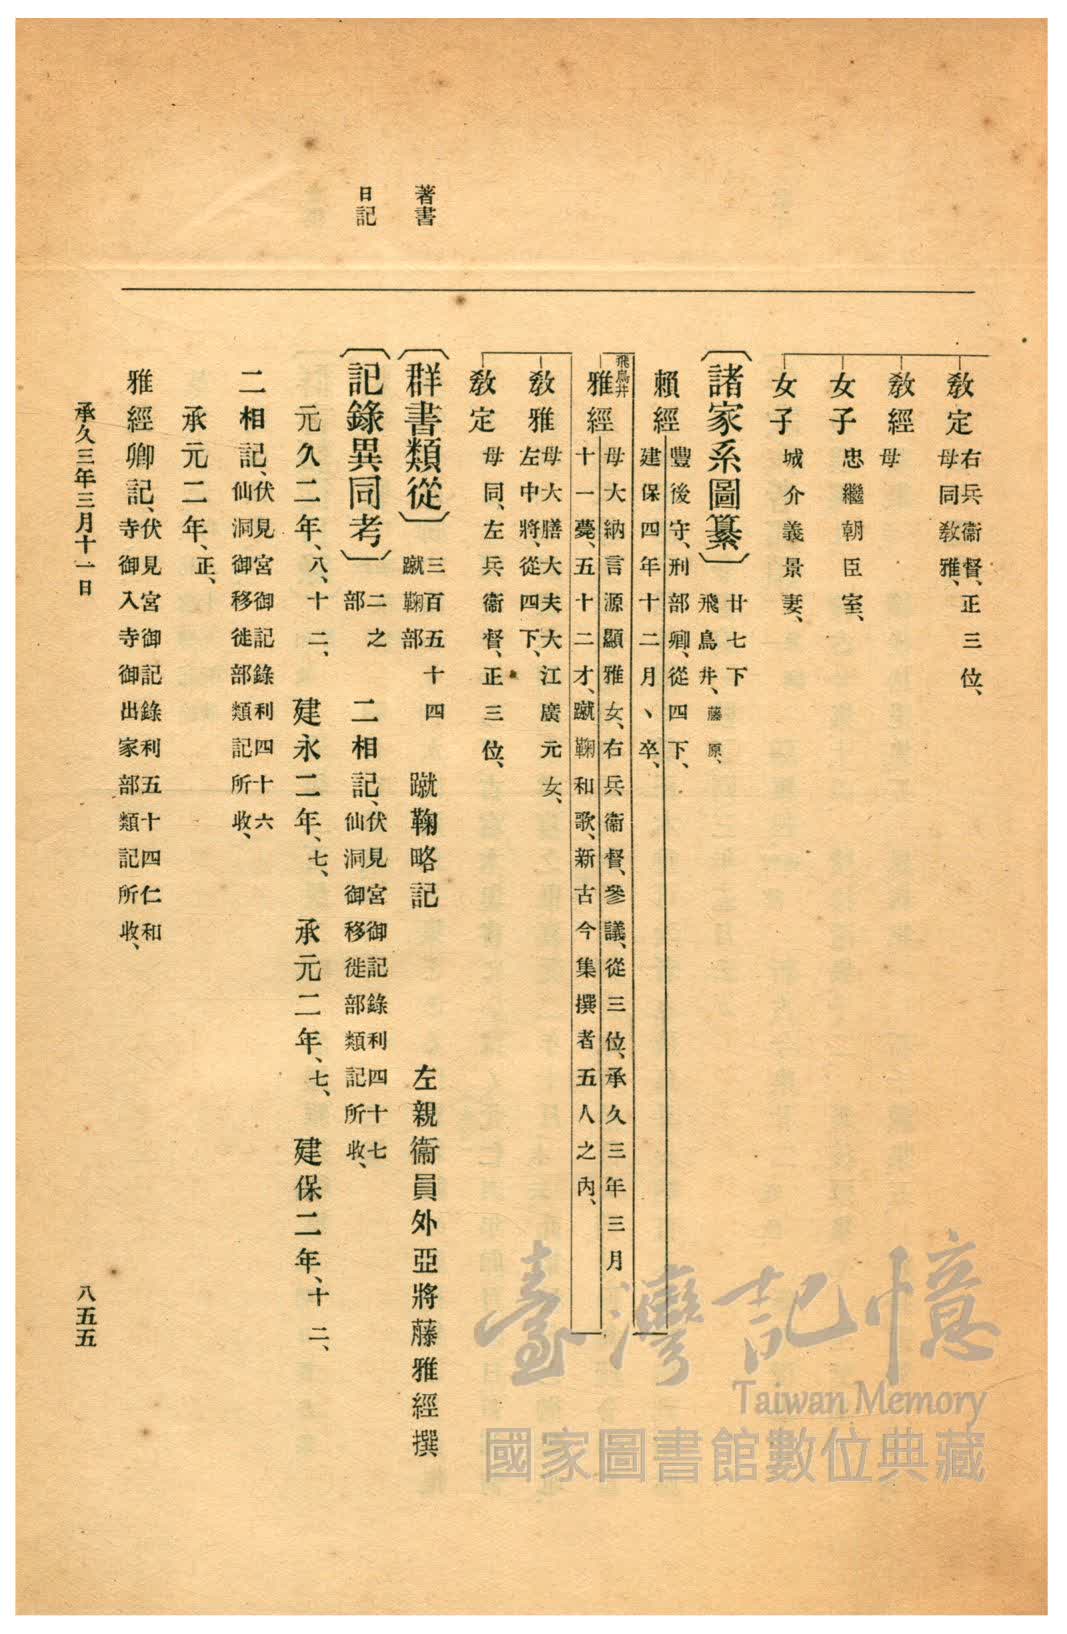 敎定 右兵衞督、正三位、
母同敎雅、
敎經 母
女子 忠繼朝臣室、
女子 城介義景妻、
〔諸家系圖纂〕 廿七下
飛鳥井、藤原、
賴經 豐後守、刑部卿、從四下、
建保四年十二月、卒、
飛鳥井
雅經 母大納言源顯雅女、右兵衞督、參議、從三位、承久三年三月
十一薨、五十二才、蹴鞠和歌、新古今集撰者五人之內、
敎雅 母大膳大夫大江廣元女、
左中將、從四下、
敎定 母同、左兵衞督、正三位、
著書
〔群書類從〕 三百五十四
蹴鞠部
蹴鞠略記 左親衞員外亞將藤雅經撰
日記
〔記錄異同考〕 二之
部
二相記、伏見宮御記錄利四十七
仙洞御移徙部類記所收、
元久二年、八、十二、 建永二年、七、 承元二年、七、 建保二年、十二、
二相記、伏見宮御記錄利四十六
仙洞御移徙部類記所收、
承元二年、正、
雅經卿記、伏見宮御記錄利五十四仁和
寺御入寺御出家部類記所收、
承久三年三月十一日
八五五
臺灣記憶
Taiwan Memory
國家圖書館數位典藏